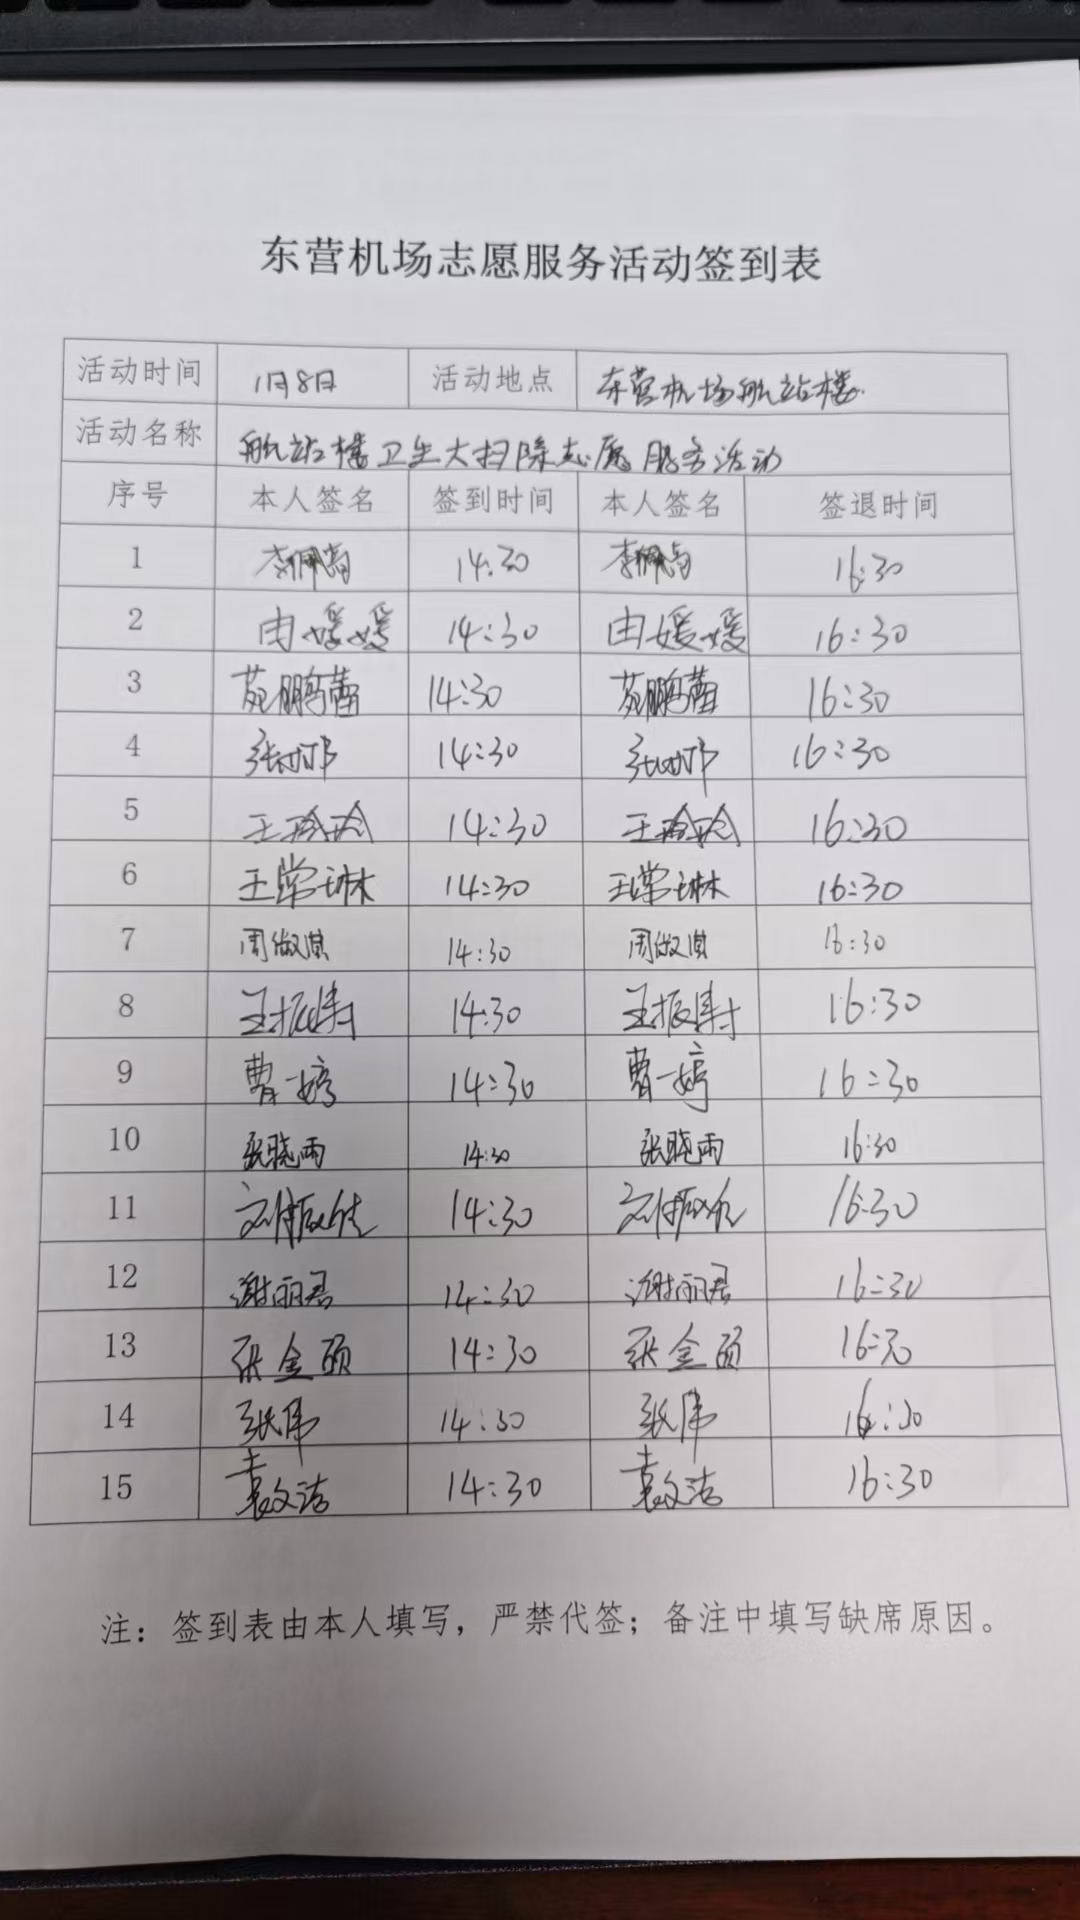 东营机场志愿服务活动签到表
活动时间 1月8日 活动地点 东营机场航站楼
活动名称 航站楼卫生大扫除志愿服务活动
序号 本人签名 签到时间 本人签名 签退时间
1 14:30 16:30
2 由媛媛 14:30 由媛媛 16:30
3 苑鹏蕾 14:30 苑鹏蕾 16:30
4 14:30 16:30
5 王玲玲 14:30 王玲玲 16:30
6 王常琳 14:30 王常琳 16:30
7 周俶淇 14:30 周俶淇 16:30
8 王振涛 14:30 王振涛 16:30
9 曹一婷 14:30 曹一婷 16:30
10 张晓雨 14:30 张晓雨 16:30
11 14:30 16:30
12 谢丽君 14:30 谢丽君 16:30
13 张金硕 14:30 张金硕 16:30
14 张伟 14:30 张伟 16:30
15 袁文洁 14:30 袁文洁 16:30
注：签到表由本人填写，严禁代签；备注中填写缺席原因。